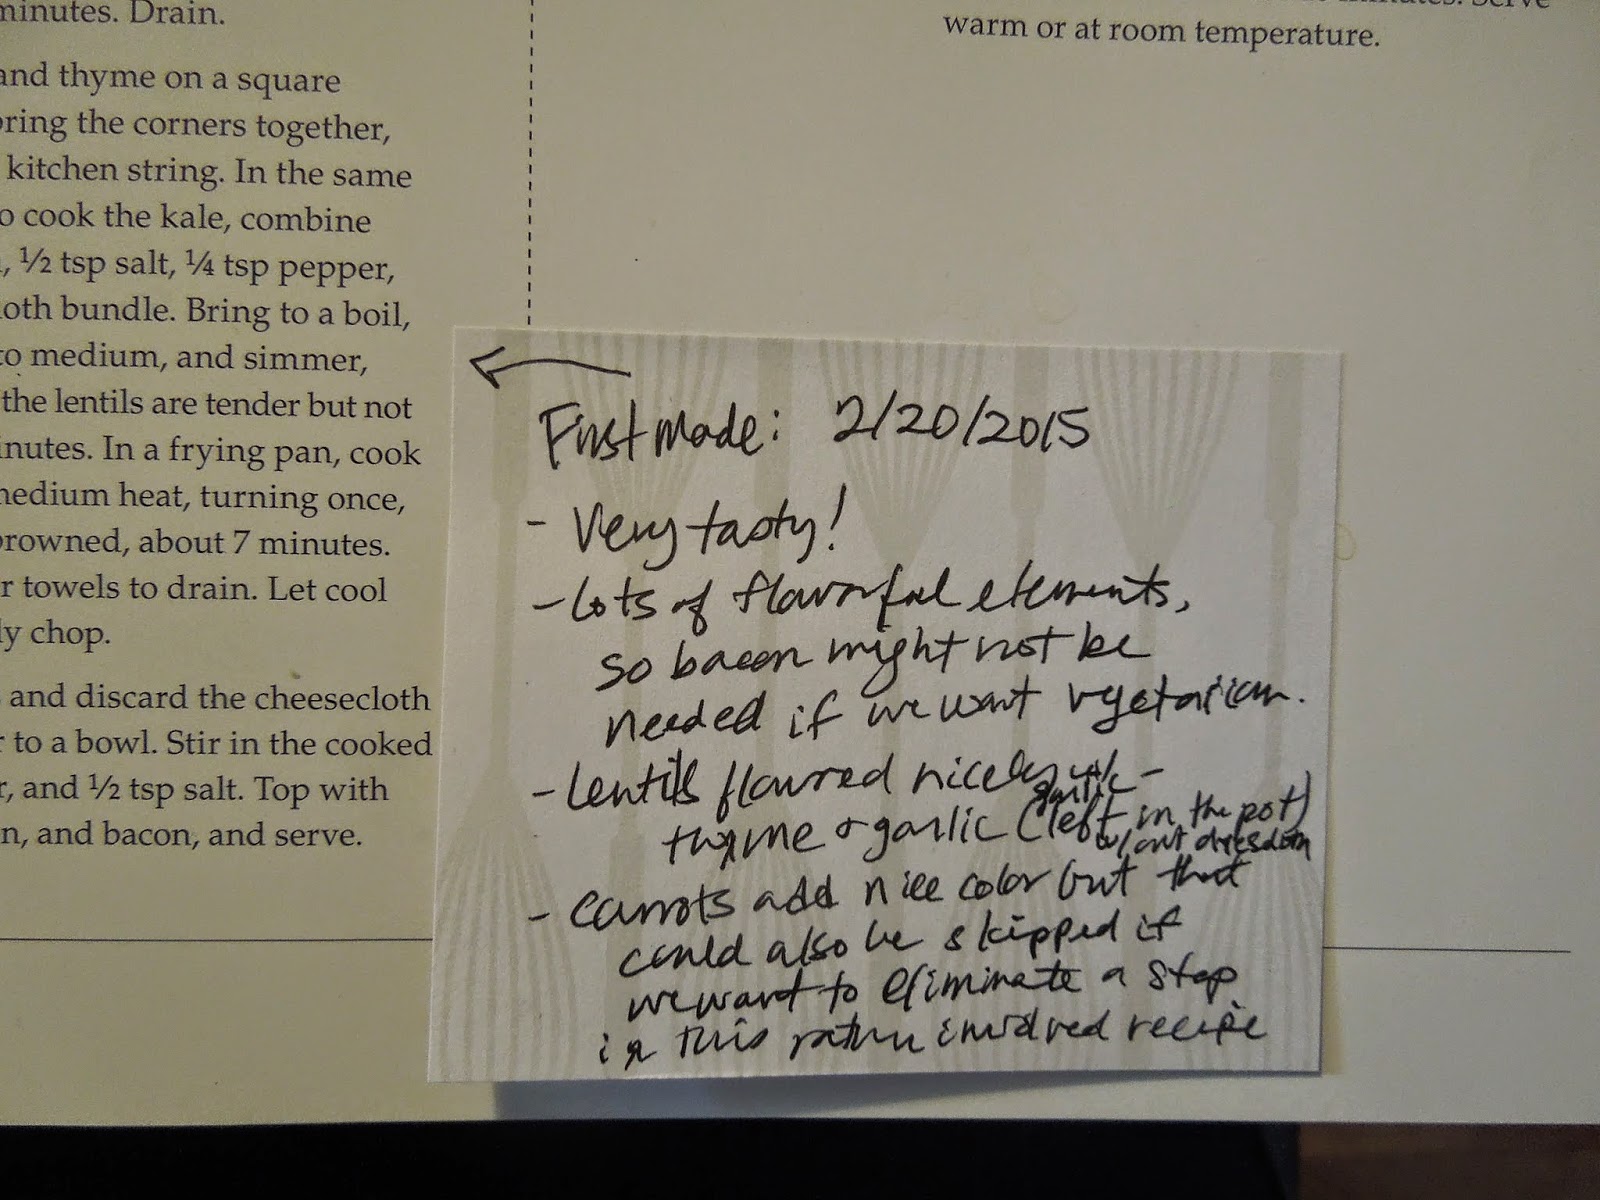 minutes. Drain.
and thyme on a square
bring the corners together,
kitchen string. In the same
to cook the kale, combine
, ½ tsp salt, ¼ tsp pepper,
oth bundle. Bring to a boil,
to medium, and simmer,
the lentils are tender but not
inutes. In a frying pan, cook
medium heat, turning once,
browned, about 7 minutes.
r towels to drain. Let cool
ly chop.
and discard the cheesecloth
r to a bowl. Stir in the cooked
r, and ½ tsp salt. Top with
n, and bacon, and serve.
minutes. Serve
warm or at room temperature.
First made: 2/20/2015
- Very tasty!
- Lots of flavorful elements,
so bacon might not be
needed if we want vegetarian.
- Lentils flavored nicely w/ -
garlic
thyme & garlic (left in the pot)
w/out
- Carrots add nice color but that
could also be skipped if
we want to eliminate a step
in this rather involved recipe